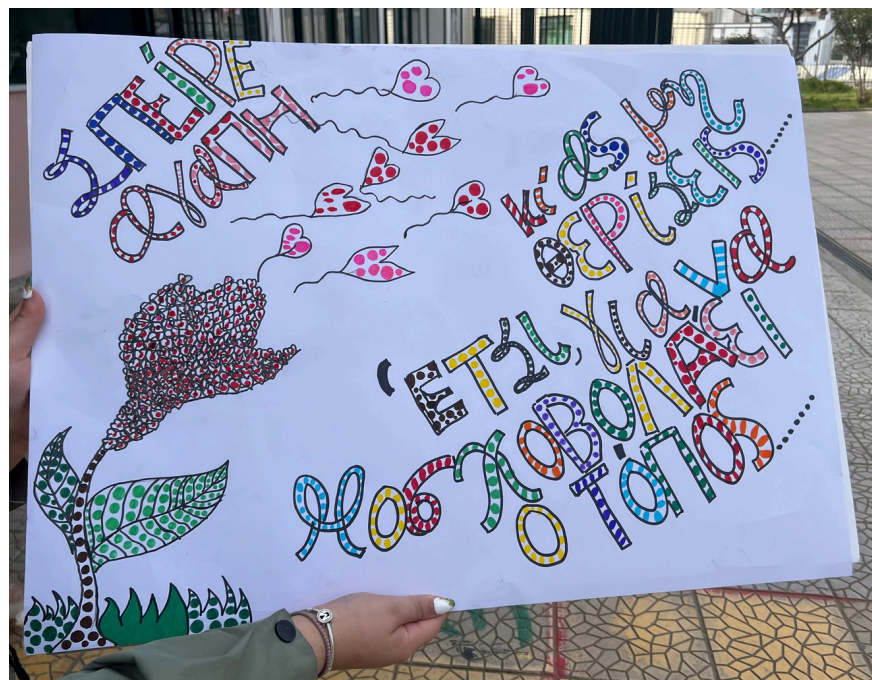 ΣΠΕΊΡΕ
αγαΠΗ
κι ας μη
ΘΕΡίσΕις.....
ΈΤσι, για να
μοσχΟΒΟΛΆει
Ο ΤΌΠΟς.....